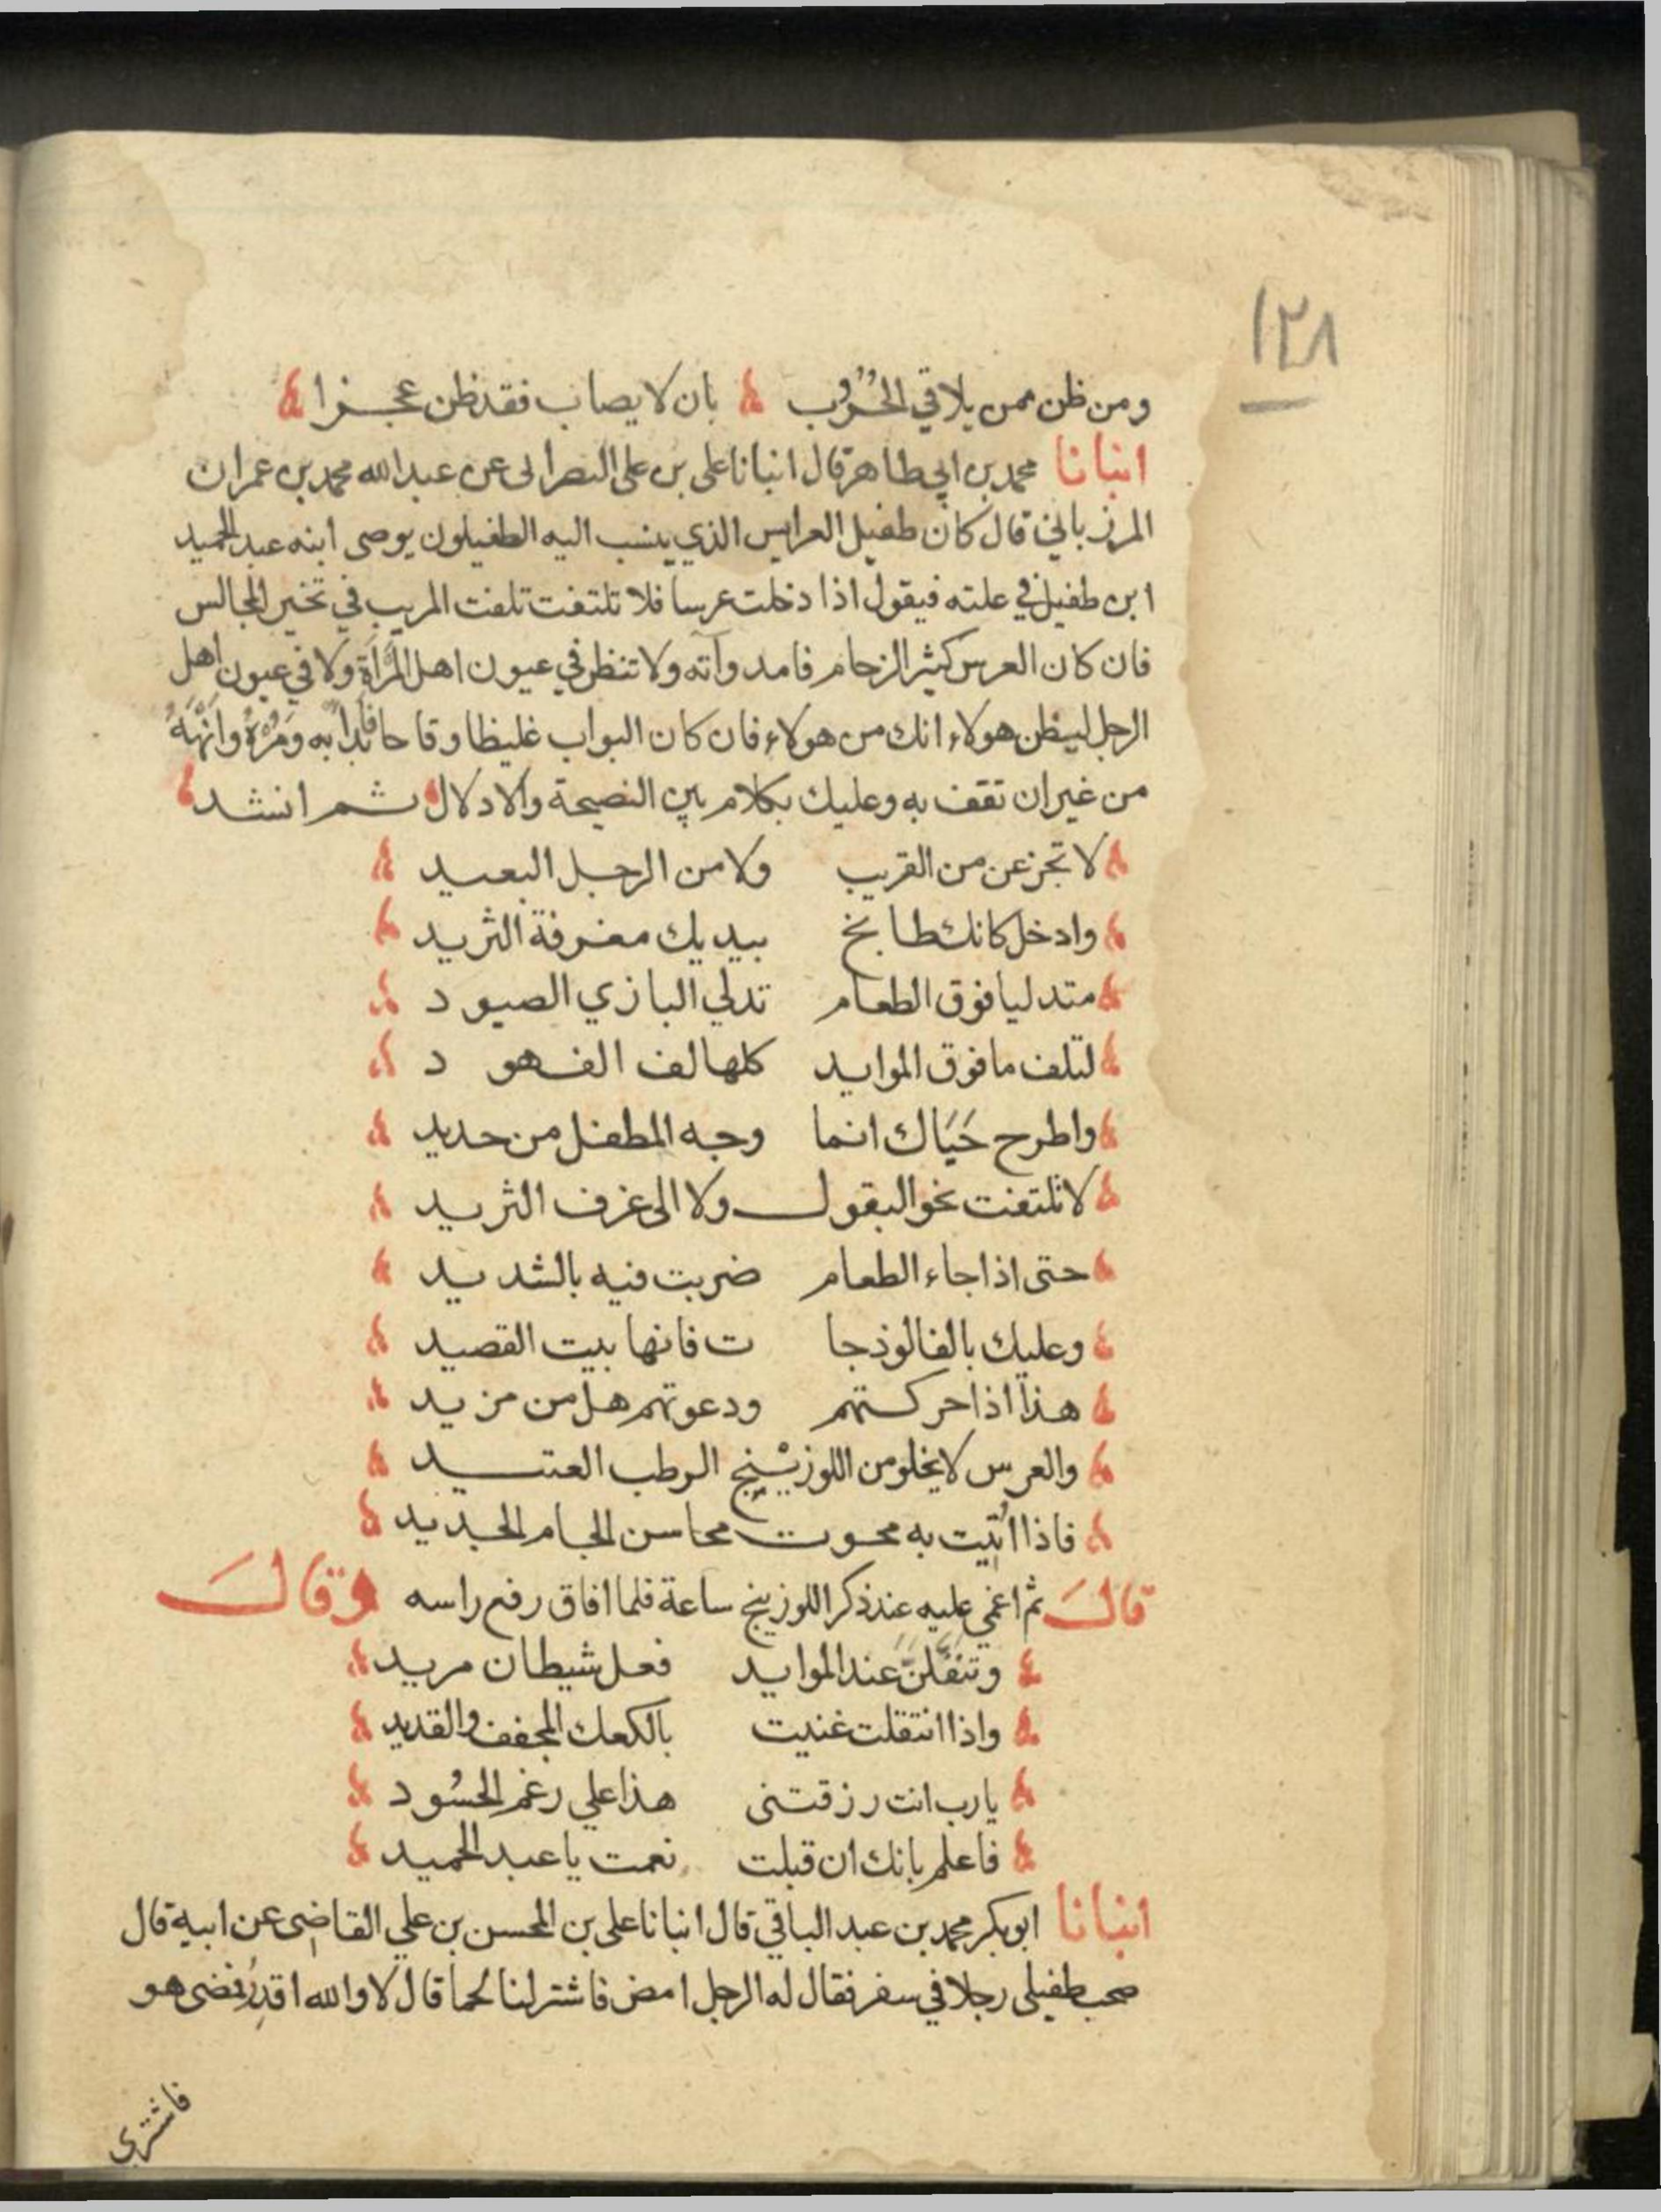 ١٢٨
ومن ظن ممن يلاقي الحروب بان لا يصاب فقد ظن عجزا
انبانا محمد بن ابي طاهر قال انبانا علي بن علي البصرا لى عن عبد الله محمد بن عمران
المرزباني قال كان طفيل العرايس الذي ينسب اليه الطفيلون يوصى ابنه عبد الحميد
ابن طفيل في علته فيقول اذا دخلت عرسا فلا تلتفت تلفت المريب في تخير المجالس
فان كان العرس كثير الزحام فامد وآته ولا تنظر في عيون اهل المرأة ولا في عيون اهل
الرجل ليظن هولاء انك من هولاء فان كان البواب غليظا وقاحا فابدا به ومره وانهه
من غير ان تقف به وعليك بكلام بين النصيحة والادلال ثم انشد
لا تجزعن من القريب ولا من الرجل البعيد
وادخل كانك طابخ بيديك مغرفة الثريد
متدليا فوق الطعام تدلي البازي الصيود
لتلف ما فوق الموايد كلها لف الفهود
واطرح حَيَاك انما وجه المطفل من حديد
لا تلتفت نحو البقول ولا الى غرف الثريد
حتى اذا جاء الطعام ضربت فيه بالشديد
وعليك بالفالوذجا ت فانها بيت القصيد
هذا اذا حركتهم ودعوتهم هل من مزيد
والعرس لا يخلو من اللوزينج الرطب العتيد
فاذا اُتيت به محوت محاسن الجام الجديد
قال ثم اغمي عليه عند ذكر اللوزينج ساعة فلما افاق رفع راسه وقال
وتنقلنّ عند الموايد فعل شيطان مريد
واذا انتقلت غنيت بالكعك المجفف والقديد
يا رب انت رزقتنى هذا علي رغم الحسود
فاعلم بانك ان قبلت نعمت يا عبد الحميد
انبانا ابو بكر محمد بن عبد الباقي قال انبانا على بن المحسن بن علي القاضى عن ابيه قال
صحب طفيلى رجلا في سفر فقال له الرجل امض فاشتر لنا لحما قال لا والله اقدر فمضى هو
فاشترى